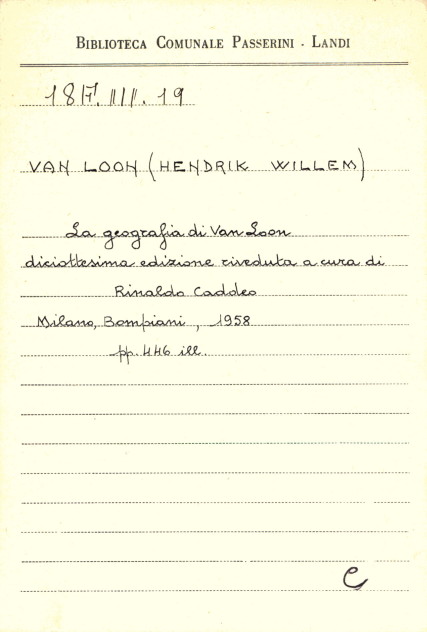 BIBLIOTECA COMUNALE PASSERINI - LANDI
18 17. III. 19
VAN LOON (HENDRIK WILLEM)
La geografia di Van Loon
diciottesima edizione riveduta a cura di
Rinaldo Caddeo
Milano, Bompiani, 1958
pp. 446 ill.
C